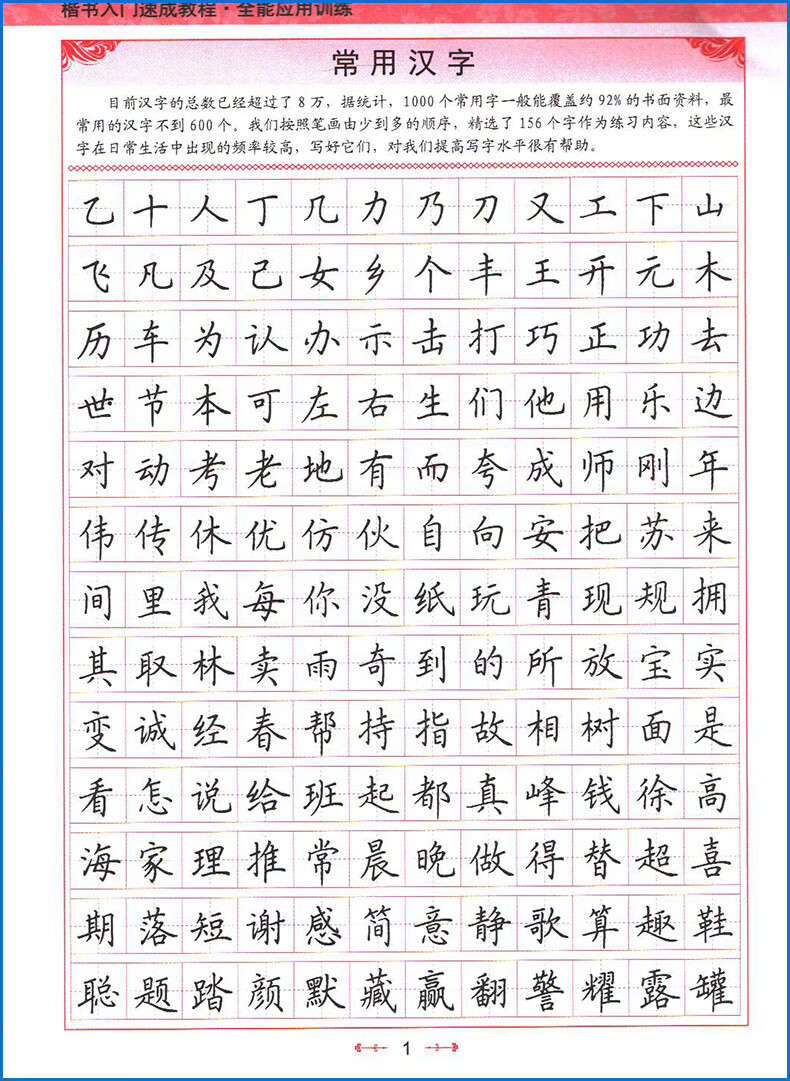 楷书入门速成教程·全能应用训练
常用汉字
目前汉字的总数已经超过了8万，据统计，1000个常用字一般能覆盖约92%的书面资料，最
常用的汉字不到600个。我们按照笔画由少到多的顺序，精选了156个字作为练习内容，这些汉
字在日常生活中出现的频率较高，写好它们，对我们提高写字水平很有帮助。
乙十人丁几力乃刀又工下山
飞凡及己女乡个丰王开元木
历车为认办示击打巧正功去
世节本可左右生们他用乐边
对动考老地有而夸成师刚年
伟传休优仿伙自向安把苏来
间里我每你没纸玩青现规拥
其取林卖雨奇到的所放宝实
变诚经春帮持指故相树面是
看怎说给班起都真峰钱徐高
海家理推常晨晚做得替超喜
期落短谢感简意静歌算趣鞋
聪题踏颜默藏赢翻警耀露罐
1